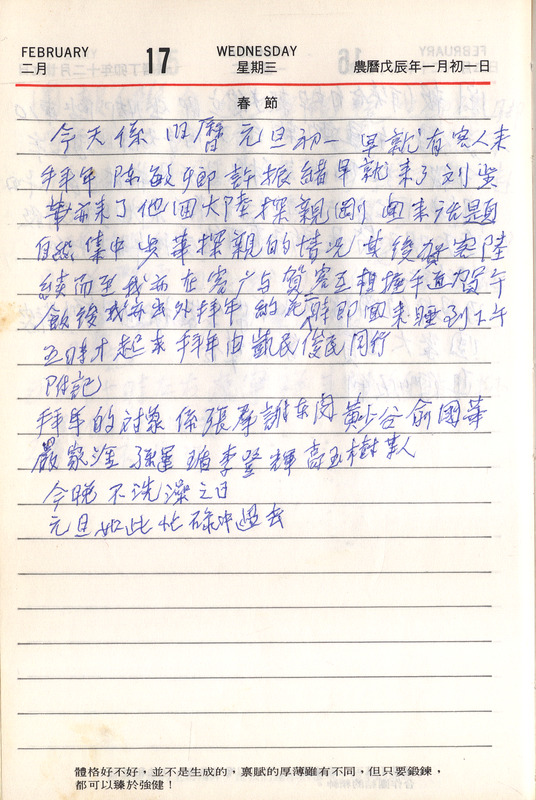 FEBRUARY
二月
17
WEDNESDAY
星期三
農曆戊辰年一月初一日
春節
今天係旧曆元旦初一 早就有客人来
拜年 陈敏卿 許振 緒早就来了刘
華亦来了他回大陸探親剛回来话題
自然集中 華探親的情况 其後 客陸
續而至我亦在客厅与賀客互相握手道賀午
飯後我亦出外拜年 約一時即回来睡到下午
五時才起来 拜年由凱民俊民同行
附記
拜年的对象係張羣謝东閔黄少谷俞國華
嚴家淦 孫運璿李登輝高玉樹等人
今晚不洗澡之日
元旦如此忙碌中過去
體格好不好，並不是生成的，禀賦的厚薄雖有不同，但只要鍛鍊，
都可以臻於強健！